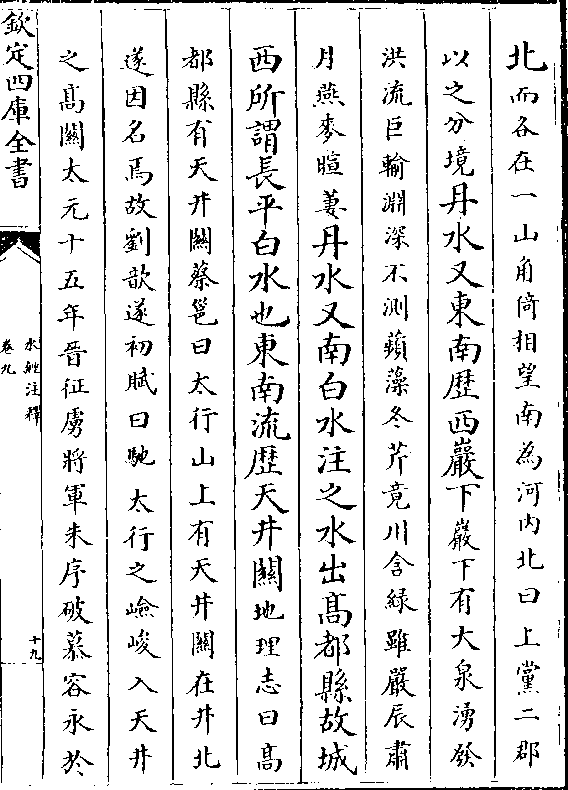 北而各在一山角倚相望南為河内北曰上黨二郡
以之分境丹水又東南歴西巖下巖下有大泉湧發
洪流巨輸淵深不測蘋藻冬芹竟川含緑雖嚴辰肅
月燕麥暄萋丹水又南白水注之水出髙都縣故城
西所謂長平白水也東南流歴天井關地理志曰髙
都縣有天井關蔡邕曰太行山上有天井關在井北
遂因名焉故劉歆遂初賦曰馳太行之嶮峻入天井
之髙關太元十五年晉征虜將軍朱序破慕容永於
欽定四庫全書
水經注釋
卷九
十九